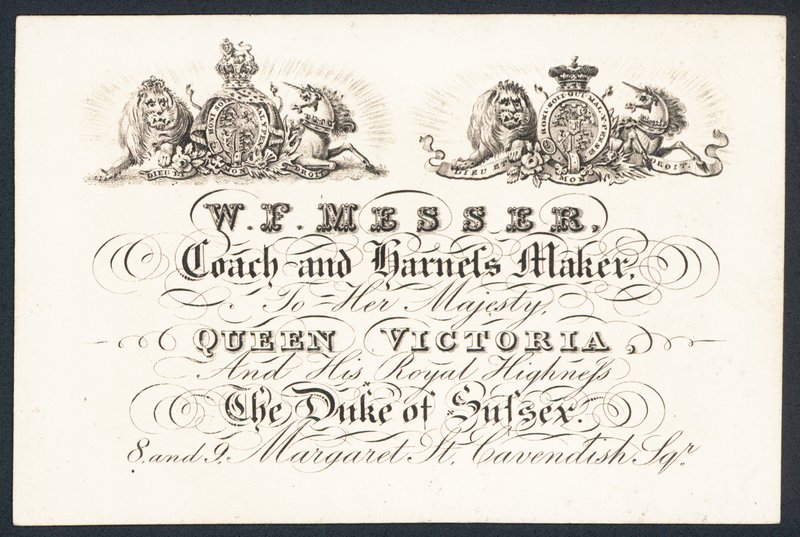 HONI SOIT QUI MAL Y PENSE
DIEU ET MON DROIT
W. F. MESSER,
Coach and Harneſs Maker,
To Her Majesty,
QUEEN VICTORIA,
And His Royal Highneſs
The Duke of Suſsex.
8, and 9, Margaret St, Cavendish Sqr.